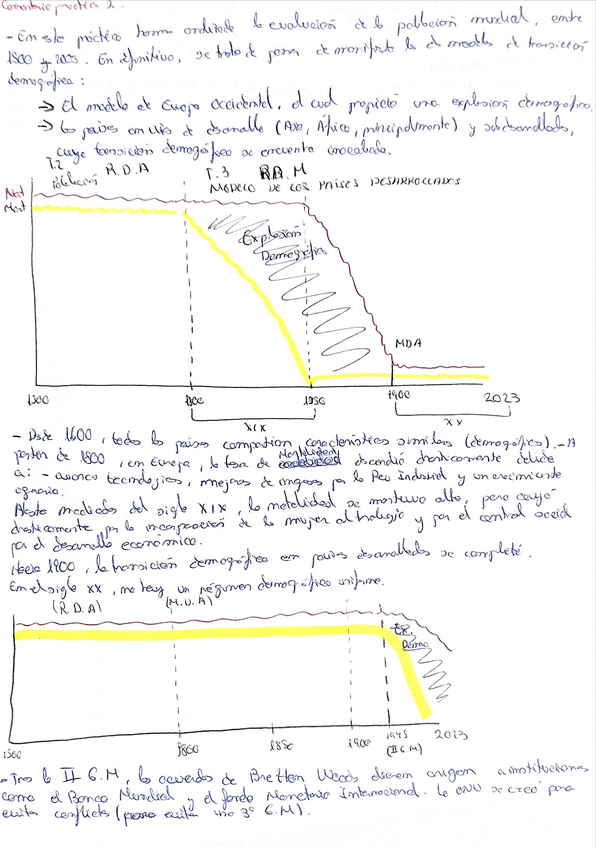 Comentario práctica 2.
- En esta práctica hemos analizado la evaluación de la población mundial, entre
1800 y 2005. En definitiva, se trata de poner de manifiesto la el modelo de transición
demográfica:
→ El modelo de Europa Occidental, el cual propició una explosión demográfica.
→ Los países en vías de desarrollo (Asia, África, principalmente) y subdesarrollados,
cuya transición demográfica se encuentra inacabada.
T.2 T.3 R.D.M
Población R.D.A MODELO DE LOS PAISES DESARROLLADOS
Nat
Mort
Explosión
Demográfica
MDA
1500 1800 1850 1900 2023
XIX XX
- Desde 1600, todos los países compartían características similares (demográfica). - A
partir de 1800, en Europa, la tasa de mortalidad descendió drásticamente debido
a: - avances tecnológicos, mejoras de ingresos por la Rev Industrial y un crecimiento
agrario.
Hasta mediados del siglo XIX, la natalidad se mantuvo alta, pero cayó
drásticamente por la incorporación de la mujer al trabajo y por el control
por el desarrollo económico.
Hacia 1900, la transición demográfica en países desarrollados se completó.
En el siglo XX, no hay un régimen demográfico uniforme.
(R.D.A) (M.D.A)
Ex.
Demo
1500 1800 1850 1900 1945 2023
(II G.M)
- Tras la II G.M, los acuerdos de Bretton Woods dieron origen a instituciones
como el Banco Mundial y el fondo Monetario Internacional. La ONU se creó para
evitar conflictos (para evitar una 3ª G.M).